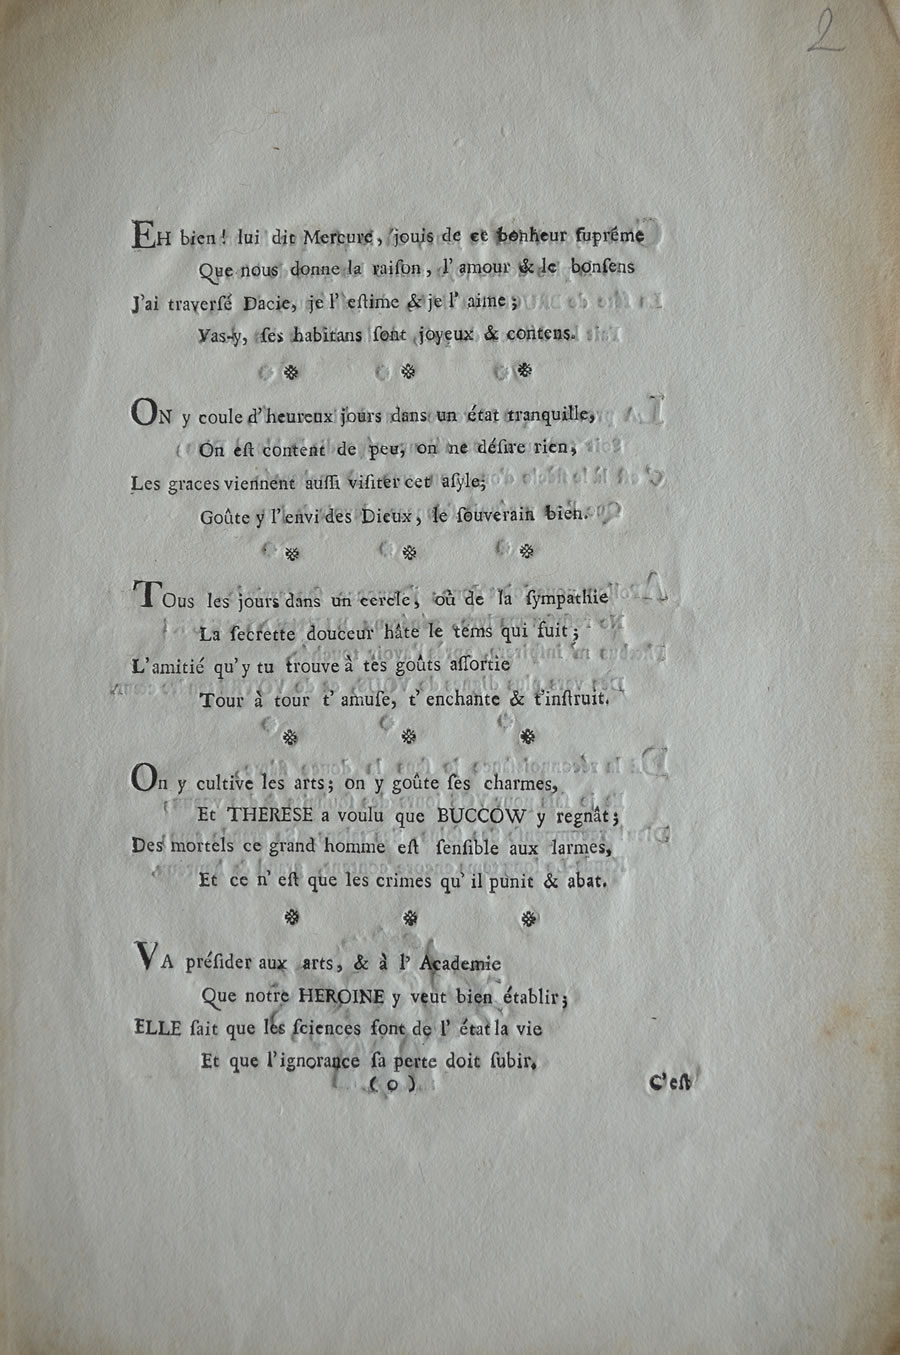 2
EH bien! lui dit Mercure, jouis de ce bonheur ſuprême
Que nous donne la raiſon, l' amour & le bonſens
J'ai traverſé Dacie, je l' eſtime & je l' aime;
Vas-y, ſes habitans ſont joyeux & contens.
ON y coule d' heureux jours dans un état tranquille,
On eſt content de peu, on ne déſire rien,
Les graces viennent auſſi viſiter cet aſyle;
Goûte y l'envi des Dieux, le ſouverain bien.
TOus les jours dans un cercle, où de la ſympathie
La ſecrette douceur hâte le tems qui fuit;
L'amitié qu'y tu trouve à tes goûts aſſortie
Tour à tour t' amuſe, t' enchante & t'inſtruit.
On y cultive les arts; on y goûte ſes charmes,
Et THERESE a voulu que BUCCOW y regnât;
Des mortels ce grand homme eſt ſenſible aux larmes,
Et ce n' eſt que les crimes qu' il punit & abat.
VA préſider aux arts, & à l' Academie
Que notre HEROINE y veut bien établir;
ELLE ſait que les ſciences ſont de l' état la vie
Et que l'ignorance ſa perte doit ſubir.
( o )
C'eſt